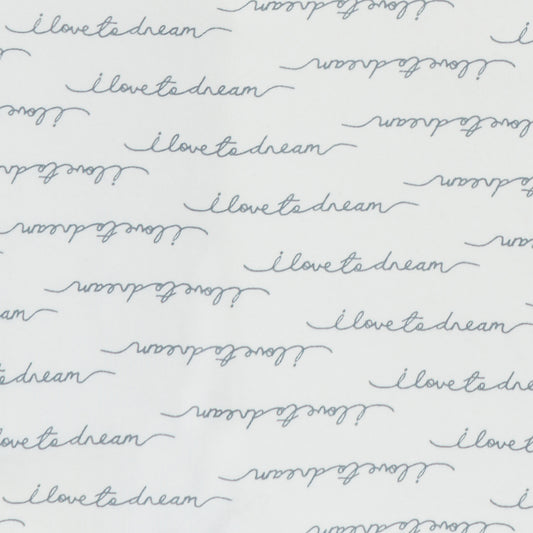 i love to dream
i love to dream
i
i love to dream
i love to dream
i love
love to dream
i love to dream
i love to
to dream
i love to dream
i love to dream
am
i love to dream
i love to dream
am
i love to dream
i love to dream
dream
i love to dre
i love to dream
love to dream
i love t
i love to dream
i love to dream
i
i love to dream